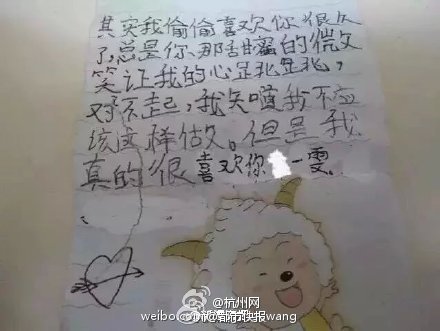 其实我偷偷喜欢你很久
了,总是你那甜蜜的微
笑让我的心
对不起,我矢道我不应
该这样做。但是我
真的很喜欢你一雯
@杭州网
@都市快报